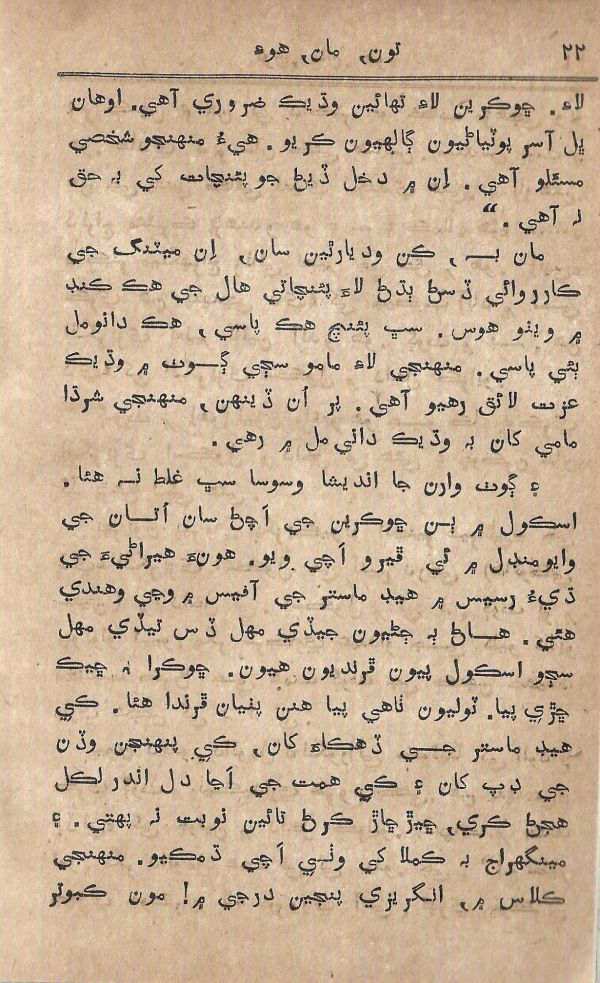 ۲۲ تون, مان, هوءَ
لاءِ. ڇوڪرين لاءِ ٿهائين وڌيڪ ضروري آهي. اوهان
ڀل آسر پوٽياڻيون ڳالهيون ڪريو. هيءُ منهنجو شخصي
مسئلو آهي. اِن ۾ دخل ڏيڻ جو پئنچات کي به حق
نه آهي.“
مان بـــه, ڪن وديارٿين سان, اِن ميٽنگ جي
ڪارروائي ڏسڻ ٻڌڻ لاءِ پئنچاتي هال جي هڪ ڪنڊ
۾ ويٺو هوس. سڀ پئنچ هڪ پاسي, هڪ دانومل
ٻئي پاسي. منهنجي لاءِ مامو سڄي ڳـــوٺ ۾ وڌيڪ
عزت لائق رهيو آهي. پر اُن ڏينهن, منهنجي شرڌا
مامي کان به وڌيڪ دائي مل ۾ رهي.
۽ ڳوٺ وارن جا انديشا وسوسا سڀ غلط نــه هئا.
اسڪول ۾ ٻــن ڇوڪرين جي اَچڻ سان اُتـــان جي
وايومنڊل ۾ ئي ڦيرو اَچي ويو. هونءَ هيراڻيءَ جي
ڌيءُ رسيس ۾ هيڊ ماستر جي آفيس ۾ وڃي وهندي
هئي. هـــاڻ ٻه ڄڻيون جيڏي مهل ڏس تيڏي مهل
سڄو اسڪول پيون ڦرنديون هيون. ڇوڪرا به ڇيڪ
ڇڙي پيا. ٽوليون ٺاهي پيا هنن پٺيان ڦرندا هئا. ڪي
هيڊ ماستر جــي ڏهڪاءَ کان, ڪي پنهنجن وڏن
جي ڊپ کان ۽ ڪي همت جي اَڃا دل اندر لڪل
هجڻ ڪري, ڇيڙ ڇاڙ ڪرڻ تائين نوبت نه پهتي. ۽
مينگهراج به ڪملا کي وٺــي اَچي ڌمڪيو. منهنجي
ڪلاس ۾, انگريزي پنجين درجي ۾! مون ڪبوتر